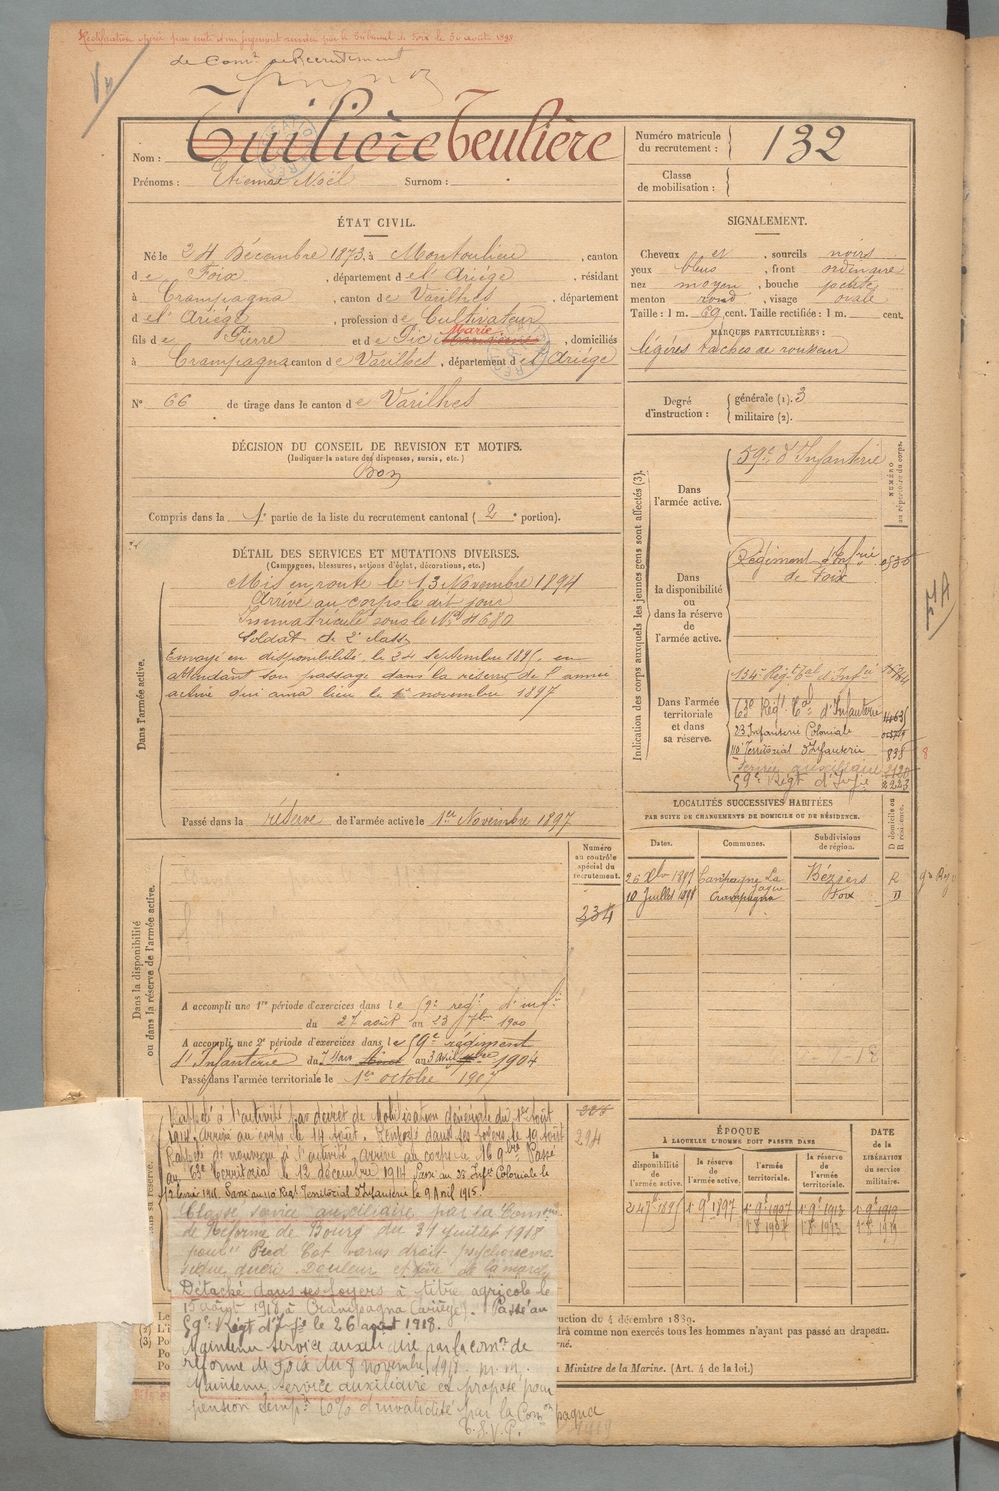 Rectification opérée par suite d'un jugement rendu par le Tribunal de Foix le 30 août 1898
de Comt de Recrutement
Nom : Tuilière Teulière
Prénoms : Etienne Noël Surnom :
Numéro matricule du recrutement : 132
Classe de mobilisation :
ÉTAT CIVIL.
Né le 24 Décembre 1873, à Montoulieu, canton
de Foix, département de l'Ariége, résidant
à Crampagna, canton de Varilhes, département
de l'Ariége, profession de Cultivateur
fils de Pierre et de Pic Marie, domiciliés
à Crampagna canton de Varilhes, département de l'Ariége
N° 66 de tirage dans le canton de Varilhes
SIGNALEMENT.
Cheveux et, sourcils noirs
yeux bleus, front ordinaire
nez moyen, bouche petite
menton rond, visage ovale
Taille : 1 m. 69 cent. Taille rectifiée : 1 m. cent.
MARQUES PARTICULIÈRES :
légères taches de rousseur
Degré d'instruction : générale (1). 3
militaire (2).
DÉCISION DU CONSEIL DE REVISION ET MOTIFS.
(Indiquer la nature des dispenses, sursis, etc.)
Bon
Compris dans la 1e partie de la liste du recrutement cantonal (2e portion).
DÉTAIL DES SERVICES ET MUTATIONS DIVERSES.
(Campagnes, blessures, actions d'éclat, décorations, etc.)
Dans l'armée active.
Mis en route le 13 Novembre 1894
Arrivé au corps le dit jour
Immatriculé sous le No 4680
Soldat de 2e classe
Envoyé en disponibilité le 24 septembre 1895, en
attendant son passage dans la réserve de l'armée
active qui aura lieu le 1er novembre 1897
Passé dans la réserve de l'armée active le 1er Novembre 1897
Indication des corps auxquels les jeunes gens sont affectés (3).
NUMÉRO au répertoire du corps.
Dans l'armée active.
59e d'Infanterie
Dans la disponibilité ou dans la réserve de l'armée active.
Régiment d'Infrie
de Foix
Dans l'armée territoriale et dans sa réserve.
134e Regt Tal d'Infie
63e Régt Tal d'Infanterie
23 Infanterie Coloniale
110 Territorial d'Infanterie 838
Service auxiliaire
59e Régt d'Infie 2223
LOCALITÉS SUCCESSIVES HABITÉES
PAR SUITE DE CHANGEMENTS DE DOMICILE OU DE RÉSIDENCE.
Dates. Communes. Subdivisions de région. D domicile ou R résidence.
26 Xbre 1897 Béziers R
10 Juillet 1898 Crampagna Foix D
Dans la disponibilité ou dans la réserve de l'armée active.
Numéro au contrôle spécial du recrutement.
234
A accompli une 1re période d'exercices dans le 59e regt d'infie
du 27 août au 23 7bre 1900
A accompli une 2e période d'exercices dans le 59e régiment
d'Infanterie du 7 Mars au 3 avril 1904
Passé dans l'armée territoriale le 1er octobre 1907
294
Rappelé à l'activité par décret de Mobilisation Générale du 1er août
1914. Arrivé au corps le 14 août. Renvoyé dans ses foyers le 19 août
Rappelé de nouveau à l'activité. Arrivé au corps le 16 9bre Passé
au 63e Territorial le 12 décembre 1914
Passé au 110 Régt Territorial d'Infanterie le 9 Avril 1915.
Classé service auxiliaire par la Comon
de Réforme de Bourg du 31 Juillet 1918
pour Pied bot varus droit
Détaché dans ses foyers à titre agricole le
15 août 1918 à Crampagna (Ariège). Passé au
59e Régt d'Infie le 26 août 1918.
Maintenu service auxiliaire par la comon de
réforme de Foix du 8 novembre
Maintenu service auxiliaire et proposé pour
pension temp. 10% d'invalidité par la Comon
T.S.V.P.
ÉPOQUE
À LAQUELLE L'HOMME DOIT PASSER DANS
la disponibilité de l'armée active. la réserve de l'armée active. l'armée territoriale. la réserve de l'armée territoriale.
DATE de la LIBÉRATION du service militaire.
1r 9bre 1897 1r 9bre 1907 1r 9bre 1913 1r 9bre 1919
1r 8bre 1907 1r 8bre 1913 1r 8bre 1919
ction du 4 décembre 1889.
drà comme non exercés tous les hommes n'ayant pas passé au drapeau.
Ministre de la Marine. (Art. 4 de la loi.)